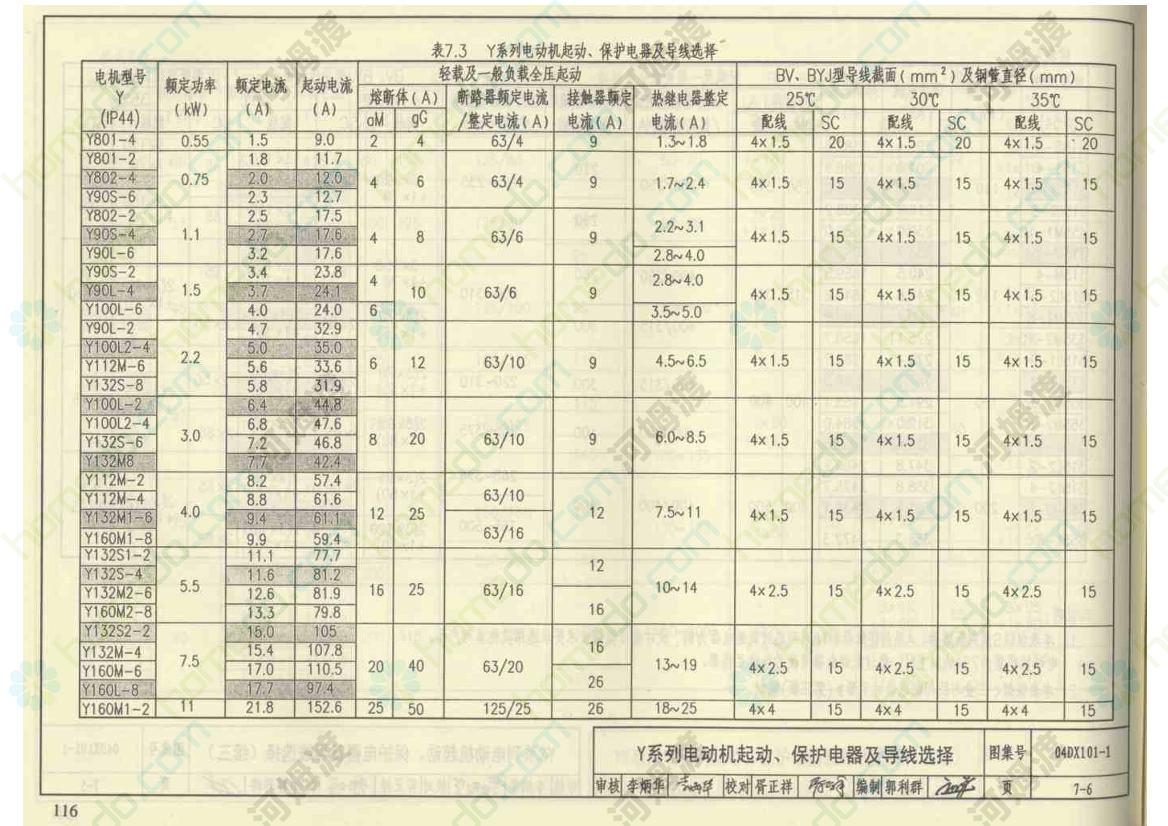 表7.3 Y系列电动机起动、保护电器及导线选择
电机型号 Y (IP44) 额定功率 (kW) 额定电流 (A) 起动电流 (A) 轻载及一般负载全压起动 BV、BYJ型导线截面(mm²)及钢管直径(mm)
熔断体(A) 断路器额定电流/整定电流(A) 接触器额定电流(A) 热继电器整定电流(A) 25℃ 30℃ 35℃
aM gG 配线 SC 配线 SC 配线 SC
Y801-4 0.55 1.5 9.0 2 4 63/4 9 1.3~1.8 4×1.5 20 4×1.5 20 4×1.5 20
Y801-2 1.8 11.7
Y802-4 0.75 2.0 12.0 4 6 63/4 9 1.7~2.4 4×1.5 15 4×1.5 15 4×1.5 15
Y90S-6 2.3 12.7
Y802-2 2.5 17.5 2.2~3.1
Y90S-4 1.1 2.7 17.6 4 8 63/6 9 4×1.5 15 4×1.5 15 4×1.5 15
Y90L-6 3.2 17.6 2.8~4.0
Y90S-2 3.4 23.8 4 2.8~4.0
Y90L-4 1.5 3.7 24.1 10 63/6 9 4×1.5 15 4×1.5 15 4×1.5 15
Y100L-6 4.0 24.0 6 3.5~5.0
Y90L-2 4.7 32.9
Y100L2-4 2.2 5.0 35.0 6 12 63/10 9 4.5~6.5 4×1.5 15 4×1.5 15 4×1.5 15
Y112M-6 5.6 33.6
Y132S-8 5.8 31.9
Y100L-2 6.4 44.8
Y100L2-4 3.0 6.8 47.6 8 20 63/10 9 6.0~8.5 4×1.5 15 4×1.5 15 4×1.5 15
Y132S-6 7.2 46.8
Y132M8 7.7 42.4
Y112M-2 8.2 57.4 63/10
Y112M-4 4.0 8.8 61.6 12 25 12 7.5~11 4×1.5 15 4×1.5 15 4×1.5 15
Y132M1-6 9.4 61.1 63/16
Y160M1-8 9.9 59.4
Y132S1-2 11.1 77.7 12
Y132S-4 5.5 11.6 81.2 16 25 63/16 10~14 4×2.5 15 4×2.5 15 4×2.5 15
Y132M2-6 12.6 81.9 16
Y160M2-8 13.3 79.8
Y132S2-2 15.0 105 16
Y132M-4 7.5 15.4 107.8 20 40 63/20 13~19 4×2.5 15 4×2.5 15 4×2.5 15
Y160M-6 17.0 110.5 26
Y160L-8 17.7 97.4
Y160M1-2 11 21.8 152.6 25 50 125/25 26 18~25 4×4 15 4×4 15 4×4 15
Y系列电动机起动、保护电器及导线选择 图集号 04DX101-1
审核 李炳华 校对 胥正祥 编制 郭利群 页 7-6
116
河姆渡
homedo.com